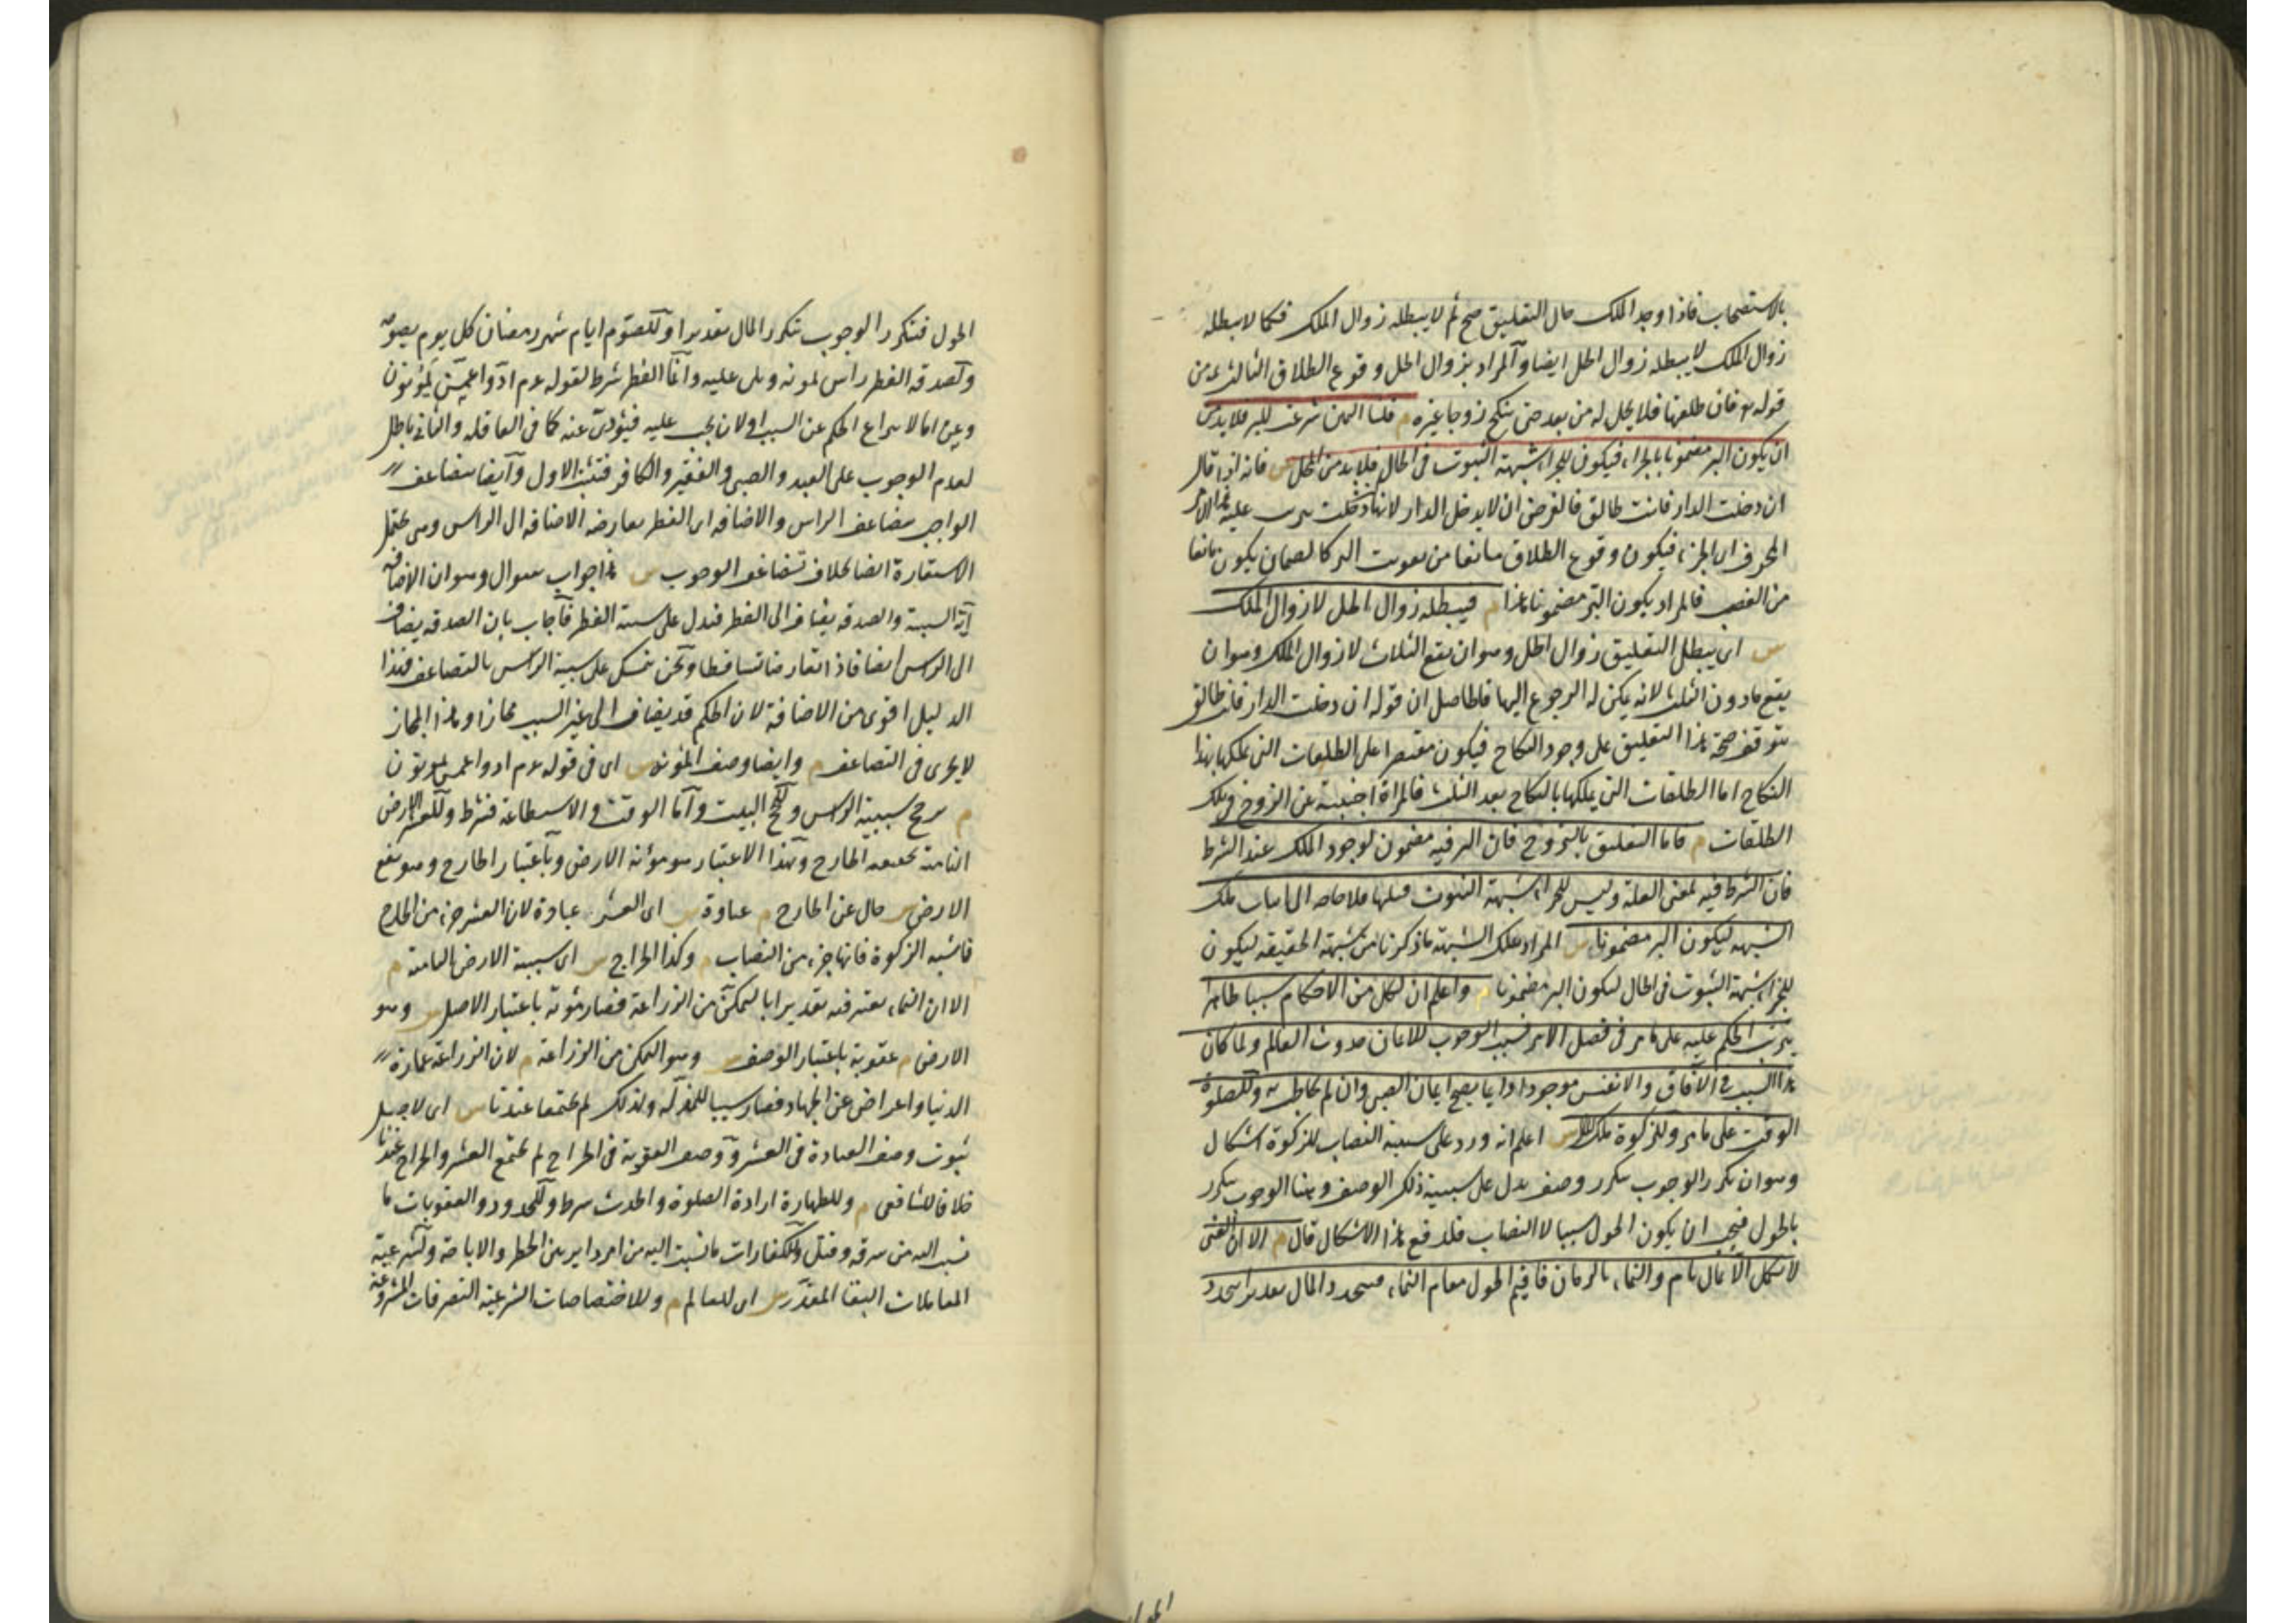 بالاستصحاب فاذا وجد الملك حال التعليق صح ثم لا يبطله زوال الملك فكما لا يبطله
زوال الملك لا يبطله زوال الحل ايضا والمراد بزوال الحل وقوع الطلاق الثالث من
قوله تع فان طلقها فلا يحل له من بعد حتى تنكح زوجا غيره م قلنا اليمين شرعت للبر فلا بد من
ان يكون البر مضمونا بالجزاء فيكون للجزاء شبهة الثبوت في الحال فلا بد من المحل س فانه اذا قال
ان دخلت الدار فانت طالق فالغرض ان لا يدخل الدار لانها ان دخلت يترتب عليه هذا الامر
المخوف اى الجزاء فيكون وقوع الطلاق مانعا من تفويت البر كالضمان يكون مانعا
من الغصب فالمراد بكون البر مضمونا هذا م فيبطله زوال الحل لا زوال الملك
س اى يبطل التعليق زوال الحل وهو ان يقع الثلاث لا زوال الملك وهو ان
يقع ما دون الثلث لانه يمكن له الرجوع اليها فالحاصل ان قوله ان دخلت الدار فانت طالق
يتوقف صحة هذا التعليق على وجود النكاح فيكون مقتصرا على الطلقات التى يملكها بهذا
النكاح اما الطلقات التى يملكها بالنكاح بعد الثلث فالمراة اجنبية عن الزوج فى تلك
الطلقات م فاما التعليق بالتزوج فان البر فيه مضمون لوجود الملك عند الشرط
فان الشرط فيه بمعنى العلة وليس للجزاء شبهة الثبوت قبلها فلا حاجة الى اثبات تلك
الشبهة ليكون البر مضمونا س المراد بتلك الشبهة ما ذكرنا من شبهة الحقيقة ليكون
للجزاء شبهة الثبوت فى الحال ليكون البر مضمونا م واعلم ان لكل من الاحكام سببا ظاهرا
يترتب الحكم عليه على ما مر فى فصل الامر فسبب الوجوب للايمان حدوث العالم ولما كان
هذا السبب فى الآفاق والانفس موجودا دايما يصح ايمان الصبى وان لم يخاطب به وللصلوة
الوقت على ما مر وللزكوة ملك المال س اعلم انه ورد على سببية النصاب للزكوة اشكال
وهو ان تكرر الوجوب بتكرر وصف يدل على سببية ذلك الوصف وهنا الوجوب يتكرر
بالحول فيجب ان يكون الحول سببا لا النصاب فلدفع هذا الاشكال قال م الا ان الغنى
لا يكمل الا بمال نام والنماء بالزمان فاقيم الحول مقام النماء فيتجدد المال تقديرا بتجدد
الحول فيتكرر الوجوب بتكرر المال تقديرا وللصوم ايام شهر رمضان كل يوم بصومه
ولصدقة الفطر راس يمونه ويلى عليه وانما الفطر شرط لقوله عم ادوا عمن تمونون
وعن اما لانتزاع الحكم عن السبب او لان يجب عليه فيؤدى عنه كما فى العاقلة والثانى باطل
لعدم الوجوب على العبد والصبى والفقير والكافر فثبت الاول وايضا يتضاعف
الواجب بتضاعف الراس والاضافة الى الفطر يعارضه الاضافة الى الراس وهى تحتمل
الاستعارة ايضا بخلاف تضاعف الوجوب س هذا جواب سوال وهو ان الاضافة
آية السببية والصدقة يضاف الى الفطر فتدل على سببية الفطر فاجاب بان الصدقة يضاف
الى الراس ايضا فاذا تعارضا تساقطا ونحن نتمسك على سببية الراس بالتضاعف فهذا
الدليل اقوى من الاضافة لان الحكم قد يضاف الى غير السبب مجازا وهذا المجاز
لا يجرى فى التضاعف م وايضا وصف المؤنة س اى فى قوله عم ادوا عمن تمونون
م يرجح سببية الراس وللحج البيت واما الوقت والاستطاعة فشرط وللعشر الارض
النامية بحقيقة الخارج وبهذا الاعتبار هو مؤنة الارض وباعتبار الخارج وهو تبع
الارض س حال عن الخارج م عبادة س اى العشر عبادة لان العشر جزء من الخارج
فاشبه الزكوة فانها جزء من النصاب م وكذا الخراج س اى سببه الارض النامية م
الا ان النماء يعتبر فيه تقديرا بالتمكن من الزراعة فصار مؤنة باعتبار الاصل س وهو
الارض م عقوبة باعتبار الوصف س وهو التمكن من الزراعة م لان الزراعة عمارة
الدنيا واعراض عن الجهاد فصار سببا للمذلة ولذلك لم يجتمعا عندنا س اى لاجل
ثبوت وصف العبادة فى العشر ووصف العقوبة فى الخراج لم يجتمع العشر والخراج عندنا
خلافا للشافعى م وللطهارة ارادة الصلوة والحدث شرط وللحدود والعقوبات ما
نسبت اليه من سرقة وقتل وللكفارات ما نسبت اليه من امر داير بين الحظر والاباحة ولشرعية
المعاملات البقا المقدر س اى للعالم م وللاختصاصات الشرعية التصرفات المشروعة